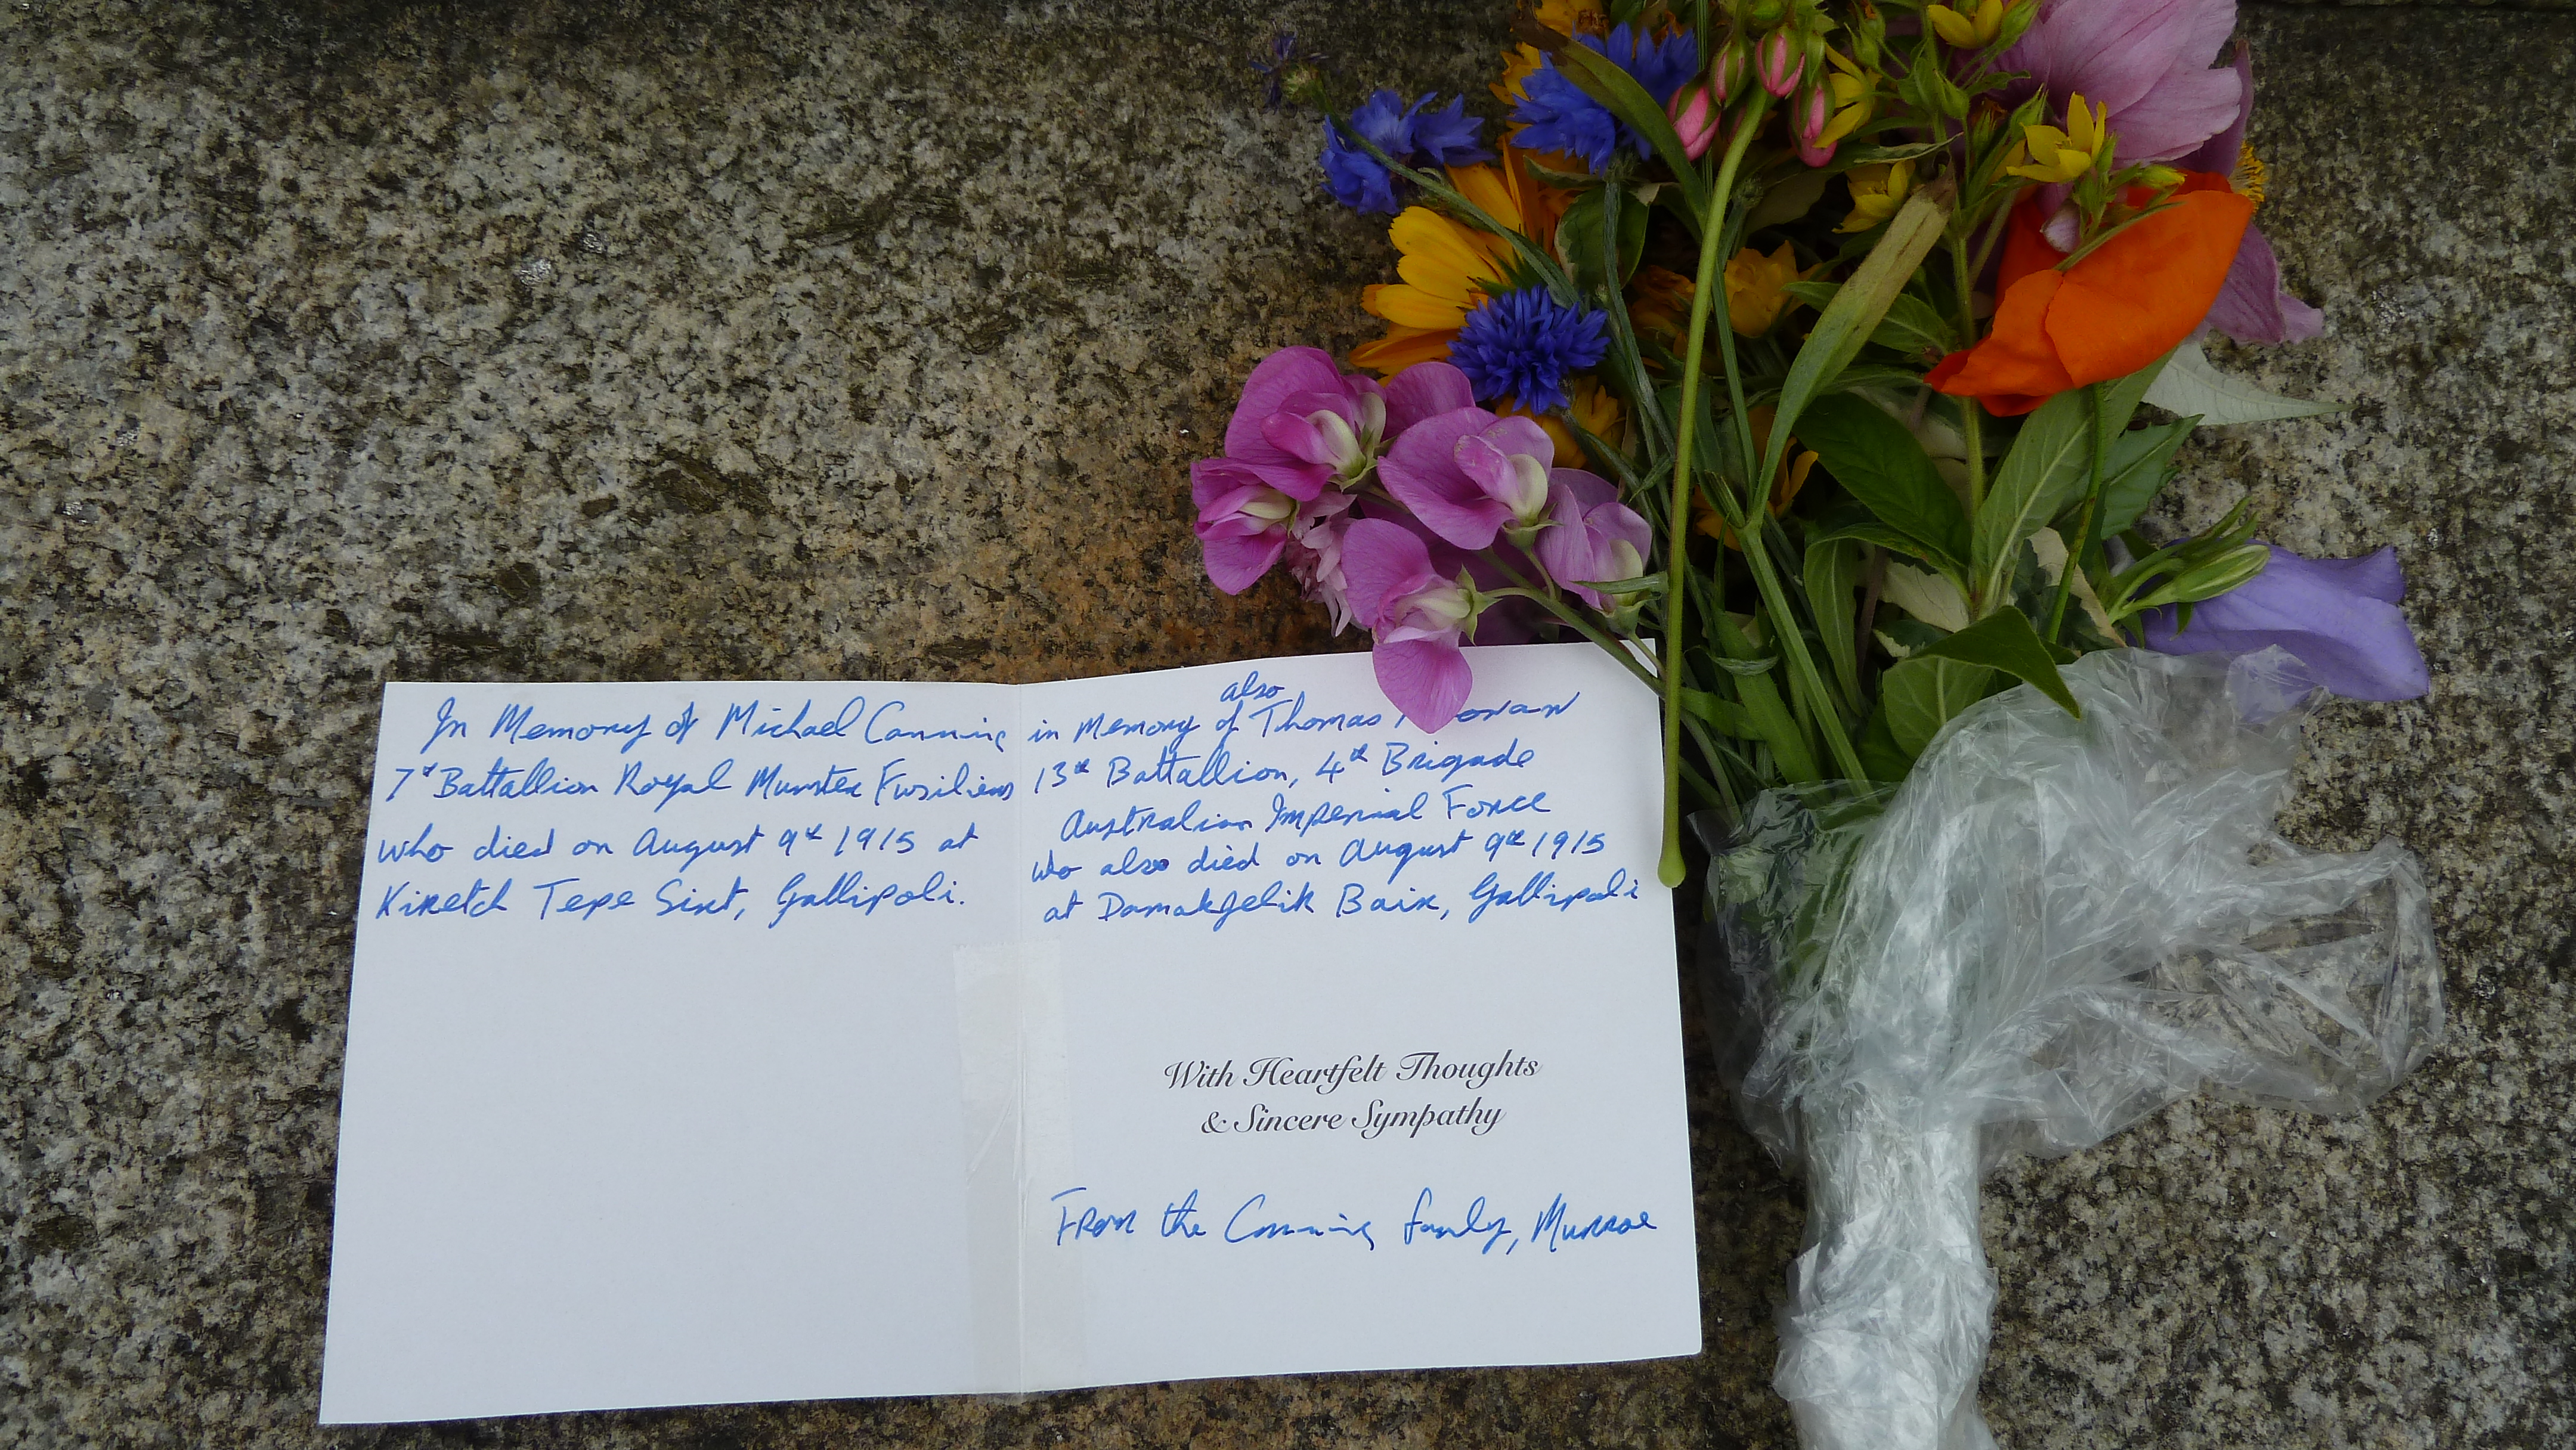 In Memory of Michael Canning
7th Battallion Royal Munster Fusiliers
who died on August 9th 1915 at
Kiretch Tepe Sirt, Gallipoli.
also
in Memory of Thomas
13th Battallion, 4th Brigade
Australian Imperial Force
who also died on August 9th 1915
at Damakjelik Bair, Gallipoli
With Heartfelt Thoughts
& Sincere Sympathy
From the Canning family, Munroe